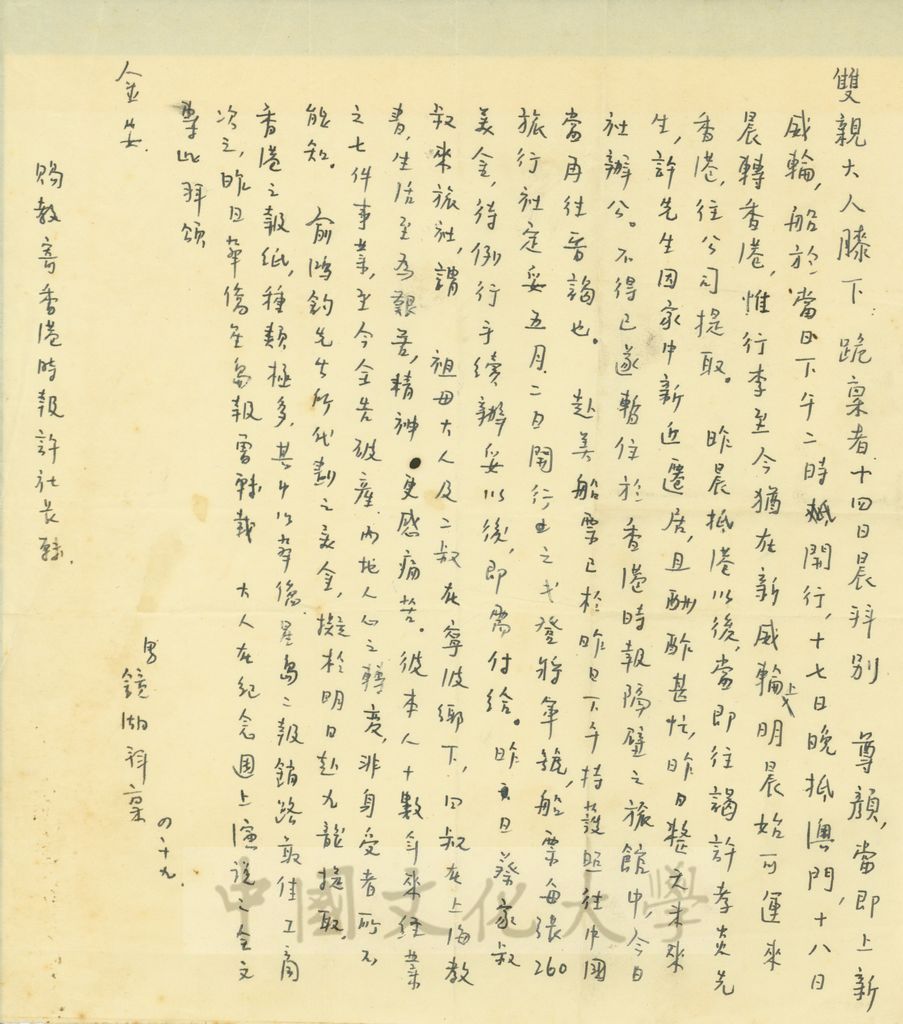 雙親大人膝下:跪稟者,十四日晨拜別 尊顏,當即上新
威輪,船於當日下午二時開行,十七日晚抵澳門,十八日
晨轉香港,惟行李至今猶在新威輪上,明晨始可運來
香港,往公司提取。 昨晨抵港以後,當即往謁許孝炎先
生,許先生因家中新近遷居,且酬酢甚忙,昨日整天未來
社辦公。不得已遂暫住於香港時報隔壁之旅館中,今日
當再往晉謁也。 赴美船票已於昨日下午持護照往中國
旅行社定妥五月二日開行之戈登將軍號,船票每張260
美金,待例行手續辦妥以後,即需付給。昨天旦蔡家叔
叔來旅社,謂 祖母大人及二叔在寧波鄉下,四叔在上海教
書,生活至為艱苦,精神更感痛苦。彼本人十數年來經業
之七件事業,至今全告破產,內地人心之轉變,非身受者所不
能知。 俞鴻鈞先生所代劃之美金,擬於明日赴九龍提取,
香港之報紙,種類極多,其中以華僑、星島二報銷路最佳,工商
次之,昨日華僑星島報曾轉載 大人在紀念週上演說之全文
專此 拜頌
金安。
賜教寄香港時報許社長轉。
男
鏡湖拜稟
四、十九、
中國文化大學